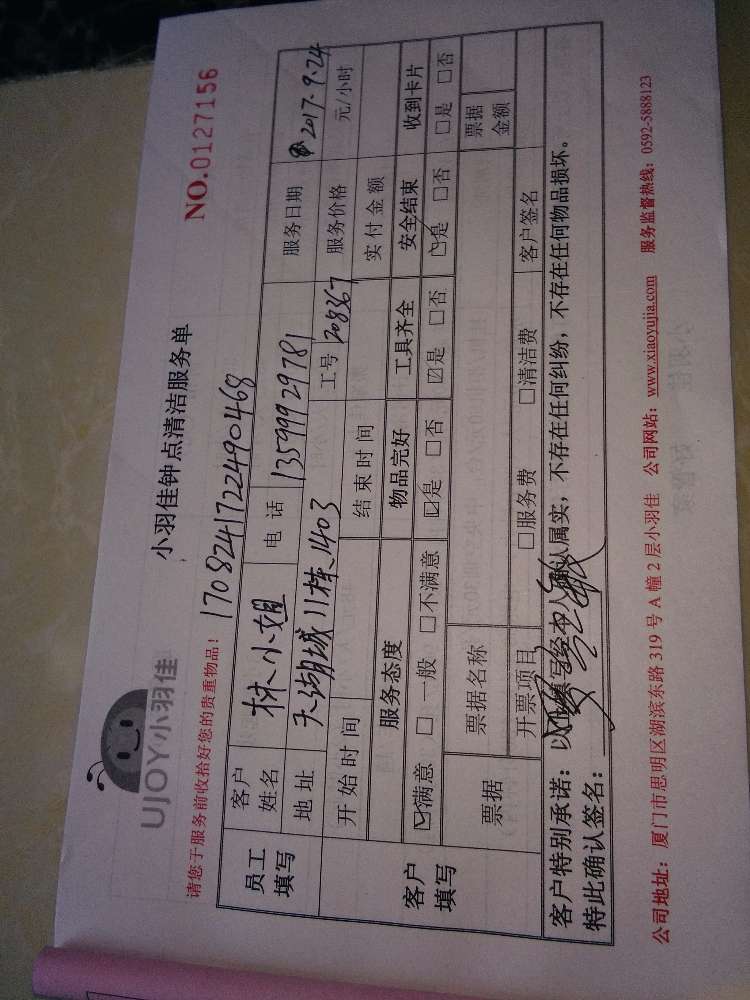 UJOY小羽佳
小羽佳钟点清洁服务单
NO.0127156
请您于服务前收拾好您的贵重物品!
1708241722490468
员工填写
客户姓名 林小姐 电话 13599929781 服务日期 2017.9.24
地址 天湖城11栋1403 工号 208367 服务价格 元/小时
客户填写
开始时间 结束时间 实付金额
服务态度 物品完好 工具齐全 安全结束 收到卡片
☑满意 □一般 □不满意 ☑是 □否 ☑是 □否 ☑是 □否 □是 □否
票据 票据名称 票据金额
开票项目 □服务费 □清洁费 客户签名
客户特别承诺:以上填写经本人确认属实,不存在任何纠纷,不存在任何物品损坏。
特此确认签名:
公司地址:厦门市思明区湖滨东路319号A幢2层小羽佳 公司网站:www.xiaoyujia.com 服务监督热线:0592-5888123